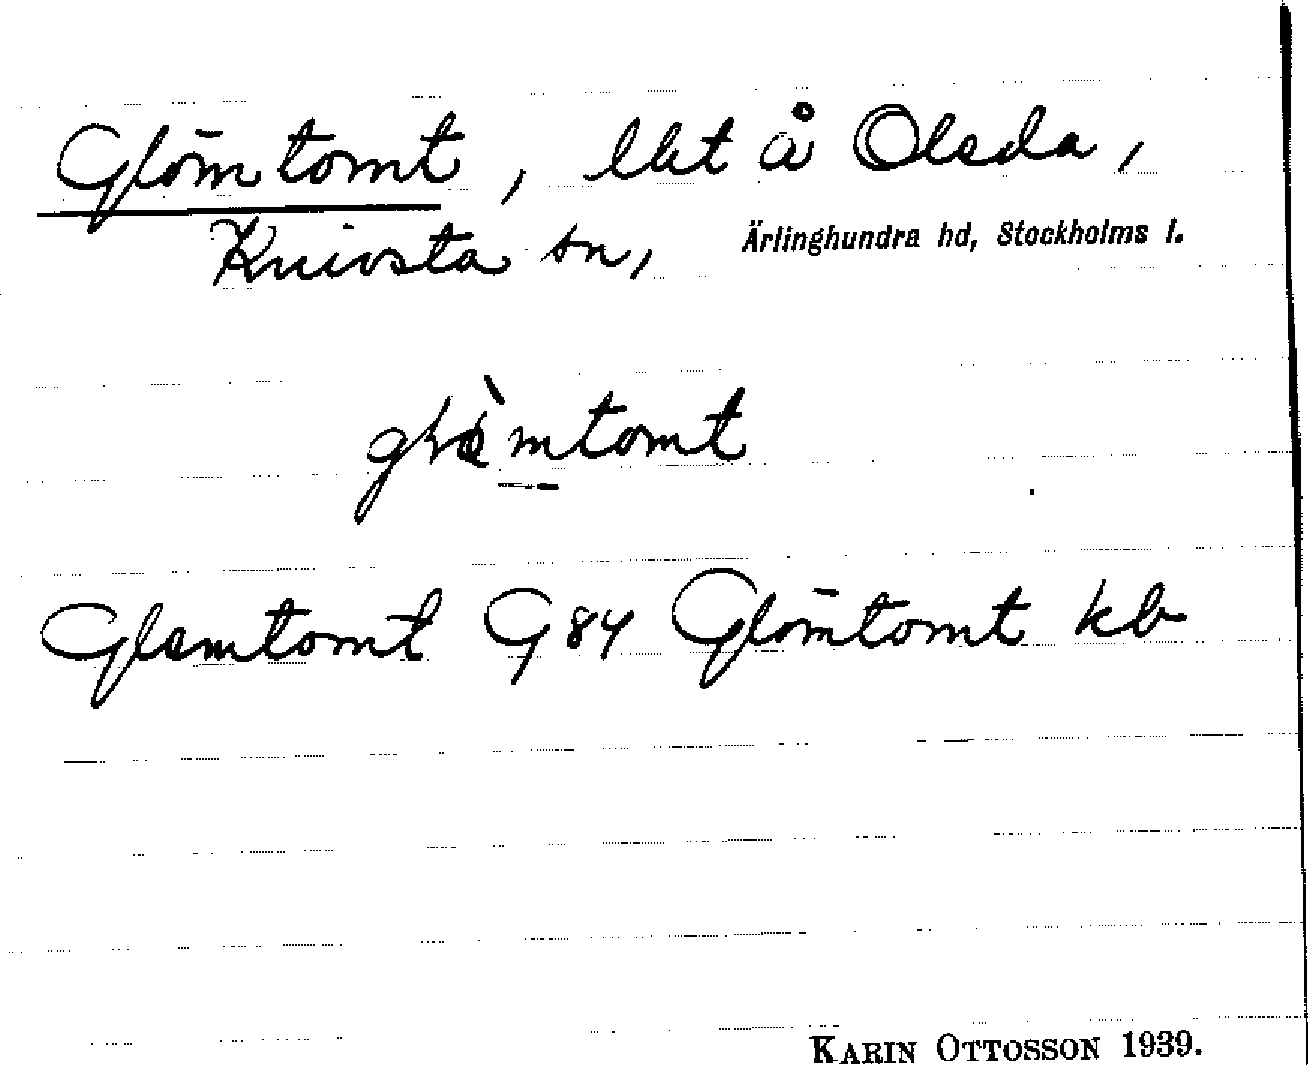 Glömtomt, lht å Olsda,
Knivsta sn, Ärlinghundra hd, Stockholms l.
glö̀mtomt
Glamtomt G84 Glömtomt kb
KARIN OTTOSSON 1939.